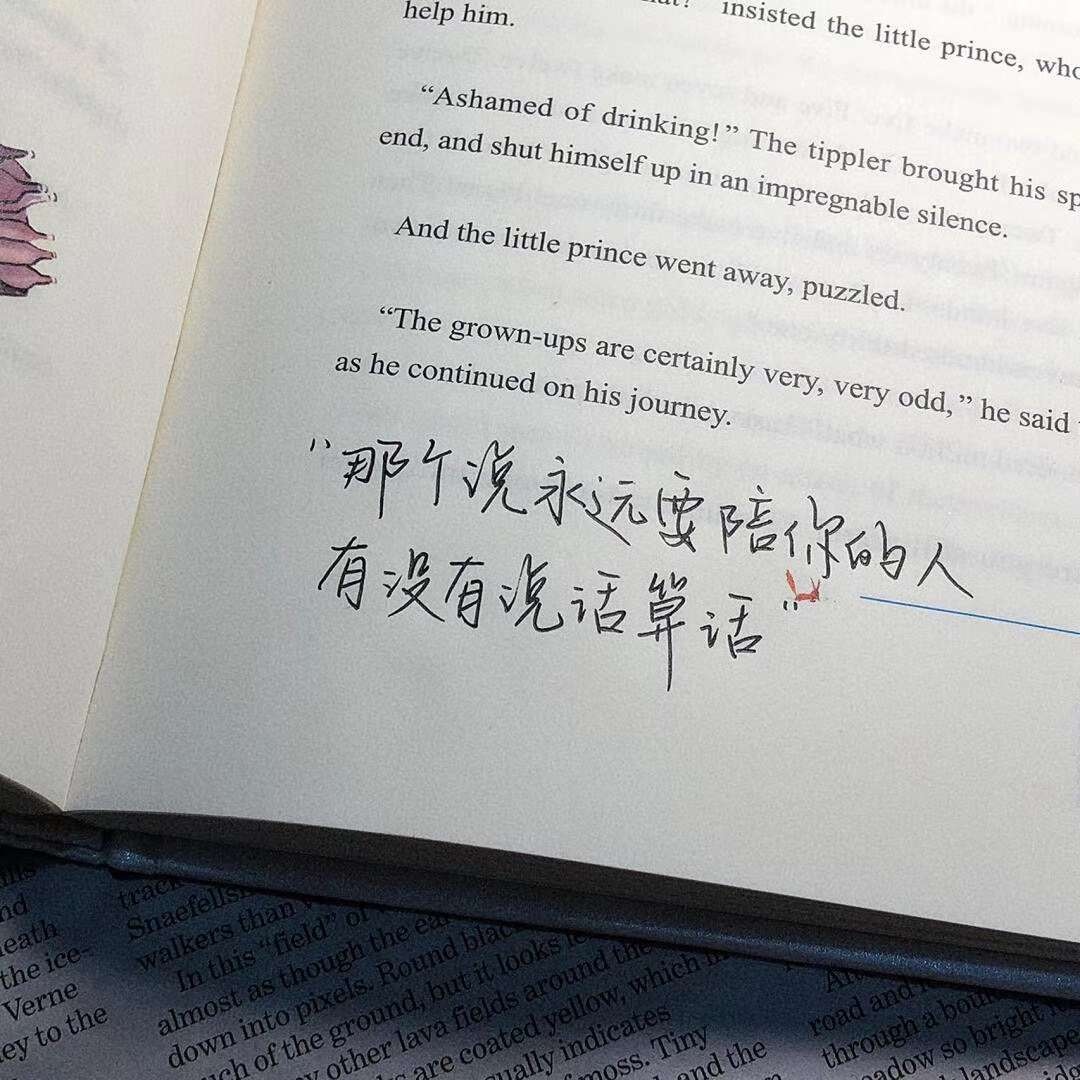 insisted the little prince, who
help him.
“Ashamed of drinking!” The tippler brought his
end, and shut himself up in an impregnable silence.
And the little prince went away, puzzled.
“The grown-ups are certainly very, very odd,” he said
as he continued on his journey.
“那个说永远要陪你的人
有没有说话算话”
and
neath
the ice-
Verne
ey to the
track
Snaefells
walkers than
In this “field” of
almost as though the
down into pixels. Round
of the ground, but it looks
other lava fields around the
are coated yellow, which
indicates
moss. Tiny
and the
road and
through a
so bright
landscape